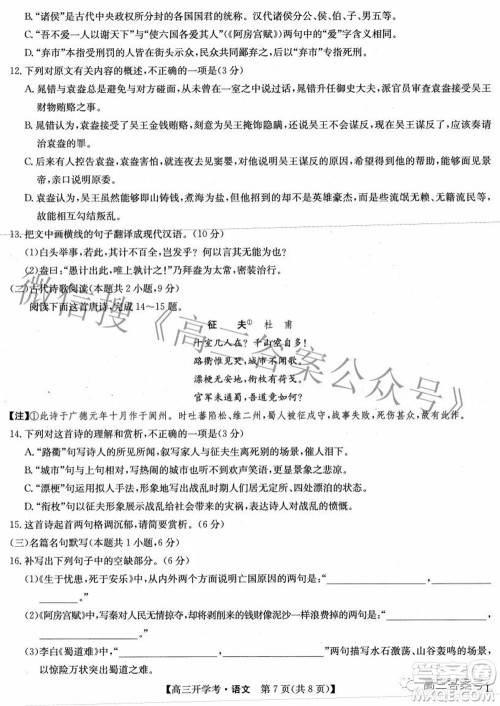 B.“诸侯”是古代中央政权所分封的各国国君的统称。汉代诸侯分公、侯、伯、子、男五等。
C.“吾不爱一人以谢天下”与“使六国各爱其人”(《阿房宫赋》)两句中的“爱”字含义相同。
D.“弃市”指受刑罚的人皆在街头示众，民众共同鄙弃之，后以“弃市”专指死刑。
12.下列对原文有关内容的概述，不正确的一项是(3 分)
A.晁错与袁盎总是避免与对方碰面，从未在一个屋里交谈；晁错升官后，派官员审查袁盎受吴王财物贿赂之事。
B.晁错认为袁盎接受了吴王金钱贿赂，专门为吴王掩饰隐瞒，才导致现在吴王谋反，应该奏请治袁盎的罪。
C.后来有人控告袁盎，说他知道吴王谋反的计谋，袁盎害怕，夜里去见窦婴，表示愿意到皇上面前，亲口对质说明原委。
D.袁盎认为，吴王虽然能够即山铸钱，煮海为盐，但引诱来的却不是英雄豪杰，而是些流氓无赖，故能相互勾结叛乱。
13.把文中画横线的句子翻译成现代汉语。(10 分)
(1)白头举事，若此，其计不百全，岂发乎？何以言其无能为也？
(2)盎曰：“愚计出此，唯上孰计之。”乃拜盎为太常，密装治行。
(二)古代诗歌阅读(本题共 2 小题，9 分)
阅读下面这首唐诗，完成 14～15 题。
征　夫①　杜　甫
十室几人在？千山空自多！
路衢惟见哭，城市不闻歌。
漂梗无安地，衔枚有荷戈。
官军未通蜀，吾道竟如何？
【注】①此诗于广德元年十月作于阆州。时吐蕃陷松、维二州，蜀人被征戍守，战事失败，死伤甚众，故有此作。
14.下列对这首诗的理解和赏析，不正确的一项是(3 分)
A.“路衢”句写诗人的所见所闻，叙写家人与征夫生离死别、牵衣顿足而哭的场景，催人泪下。
B.“城市”句与上句相对，写热闹的城市现在却听不到歌声，突出城市的萧条、冷落。
C.“漂梗”句使用了比兴手法，形象地写出战乱时期人民居无定所、四处漂泊的状态。
D.“衔枚”句，写士兵口衔枚、肩荷戈，形象地写出战斗来临之前的紧张情形。
15.这首诗起首两句格调沉郁，请简要赏析。(6 分)
(三)名篇名句默写(本题共 1 小题，6 分)
16.补写出下列句子中的空缺部分。(6 分)
(1)《生于忧患，死于安乐》中，从反面论证造成国家衰亡的原因的两句是：“　　　　，　　　　”。
(2)《阿房宫赋》中，写秦对人民无情掠夺，却将掠夺来的钱财像泥沙一样浪费的两句是：“　　　　，　　　　”
(3)李白《蜀道难》中，描写急流和瀑布冲击山崖、石块滚动的场景，表现水石激荡、山谷轰鸣的声音，以惊险万状突出了蜀道之难的两句是：“　　　　，　　　　”。
【高三开学考·语文　第 7 页(共 8 页)】
微信搜《高三答案公众号》
高三答案号